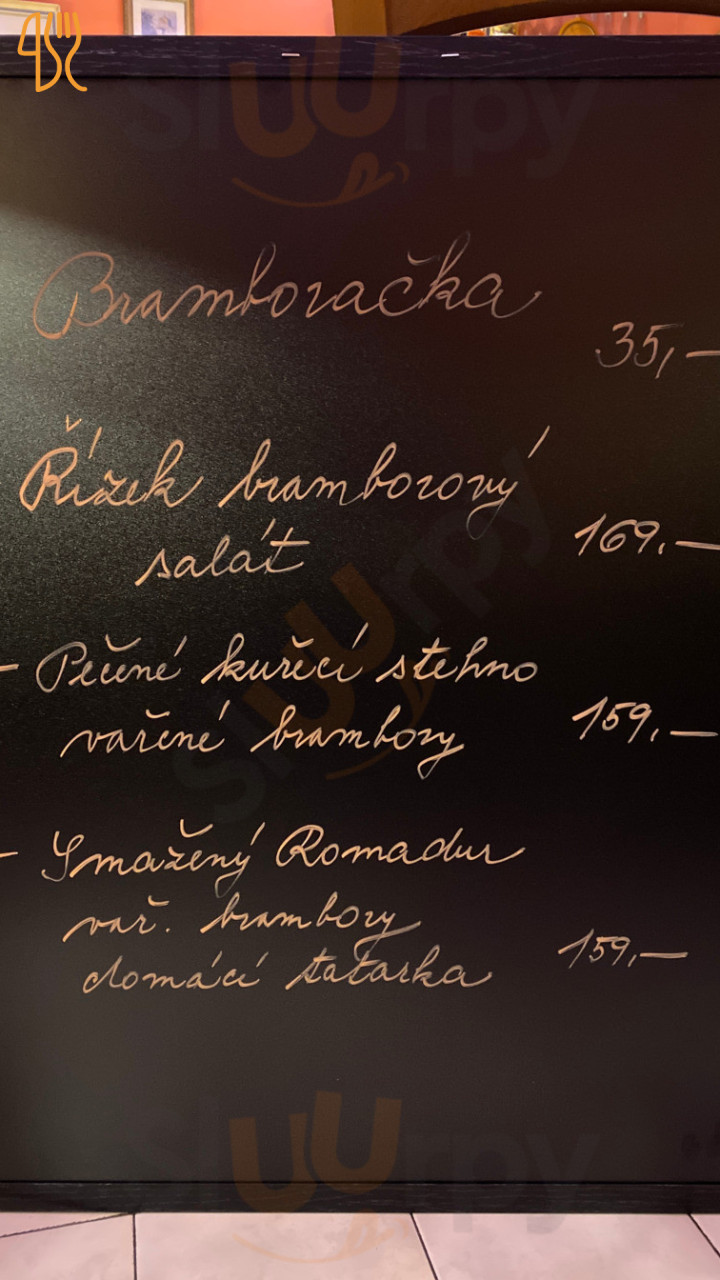 sluurpy
Bramboračka
35,-
Řízek bramborový
salát 169.-
- Pečené kuřecí stehno
vařené brambory 159,-
- Smažený Romadur
vař. brambory
domácí tatarka 159,-
sluurpy
sluurpy